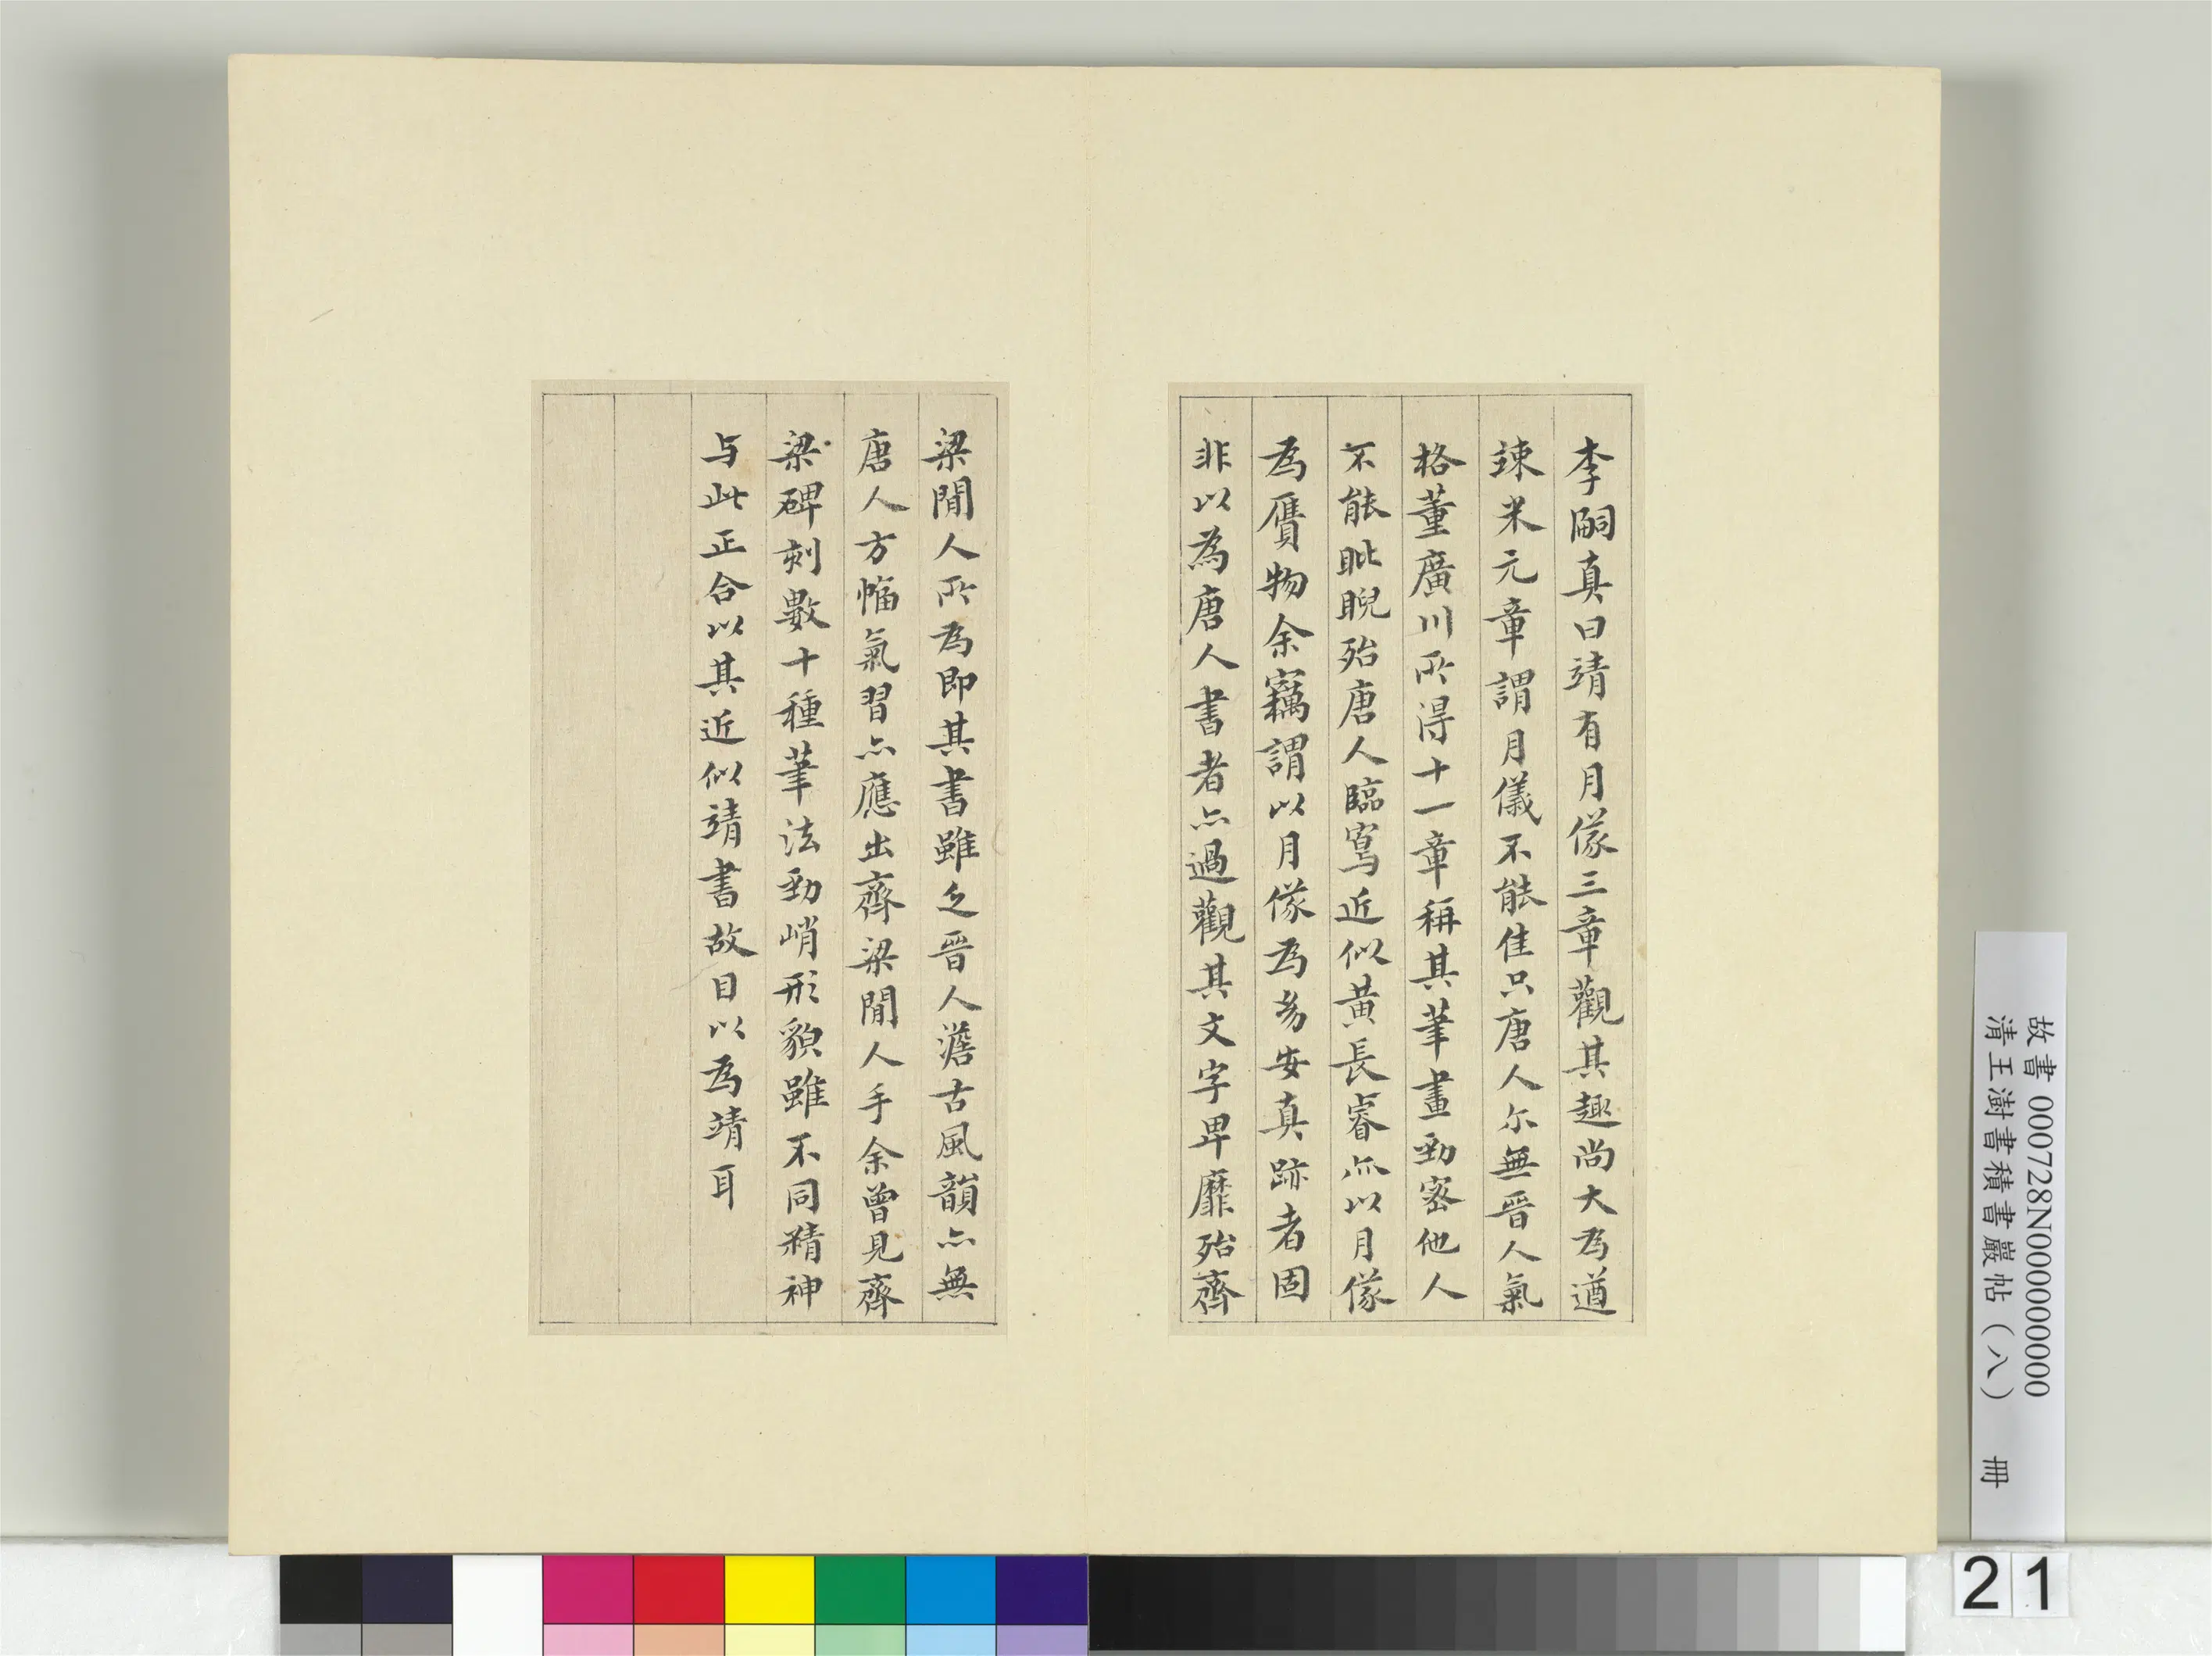 李嗣真曰靖有月儀三章觀其趣尚大為遒
竦米元章謂月儀不能佳只唐人尓無晋人氣
格董廣川所得十一章稱其筆畫勁密他人
不能睥睨殆唐人臨寫近似黃長睿亦以月儀
為贋物余竊謂以月儀為幼安真跡者固
非以為唐人書者亦過觀其文字卑靡殆齊
梁閒人所為即其書雖乏晋人澹古風韻亦無
唐人方幅氣習亦應出齊梁閒人手余曾見齊
梁碑刻數十種筆法勁峭形貌雖不同精神
与此正合以其近似靖書故目以為靖耳
故書 000728N000000000
清王澍書積書巖帖（八） 冊
21